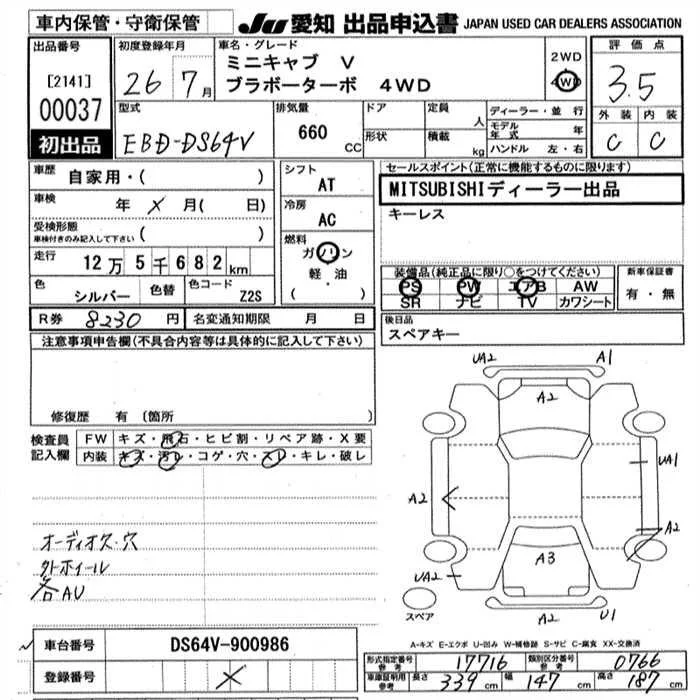 車内保管・守衛保管
JU 愛知 出品申込書 JAPAN USED CAR DEALERS ASSOCIATION
出品番号
[2141]
00037
初出品
初度登録年月
26年 7月
車名・グレード
ミニキャブ V
ブラボーターボ 4WD
2WD
4WD
評価点
3.5
外装 内装
C C
型式
EBD-DS64V
排気量
660 CC
ドア
形状
定員 人
積載 kg
ディーラー・並行
モデル年式 年
ハンドル 左・右
車歴
自家用・( )
車検 年 X 月( 日)
受検形態
車検付きのみ記入して下さい ( )
走行 12万5千682km
色 シルバー 色替 色コード Z2S
シフト
AT
冷房
AC
燃料
ガソリン
軽油
・( )
セールスポイント(正常に機能するものに限ります)
MITSUBISHIディーラー出品
キーレス
装備品(純正品に限り○をつけてください)
PS PW エアB AW
SR ナビ TV カワシート
新車保証書
有・無
R券 8230円 名変通知期限 月 日
後日品
スペアキー
注意事項申告欄(不具合内容等は具体的に記入して下さい)
修復歴 有 〔箇所
検査員記入欄
FW キズ・飛石・ヒビ割・リペア跡・X要
内装 キズ・汚レ・コゲ・穴・スレ・キレ・破レ
オーディオス・穴
外ホイール
各AU
UA2 A1
A2
UA1
A2
A2
A3
UA2
A2 U1
スペア
A-キズ E-エクボ U-凹み W-補修跡 S-サビ C-腐食 XX-交換済
車台番号 DS64V-900986
登録番号 X
形式指定番号 参考 17716 類別区分番号 参考 0766
車庫証明用 参考 長さ 339cm 幅 147cm 高さ 187cm